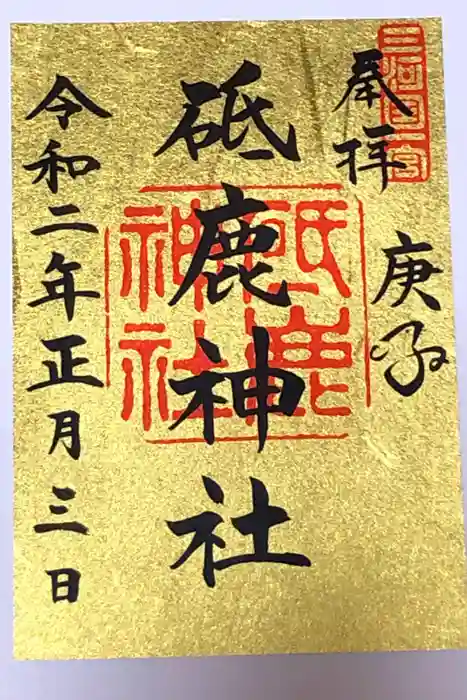 三河国一宮
奉拝
庚子
砥鹿神社
砥鹿神社
令和二年正月三日